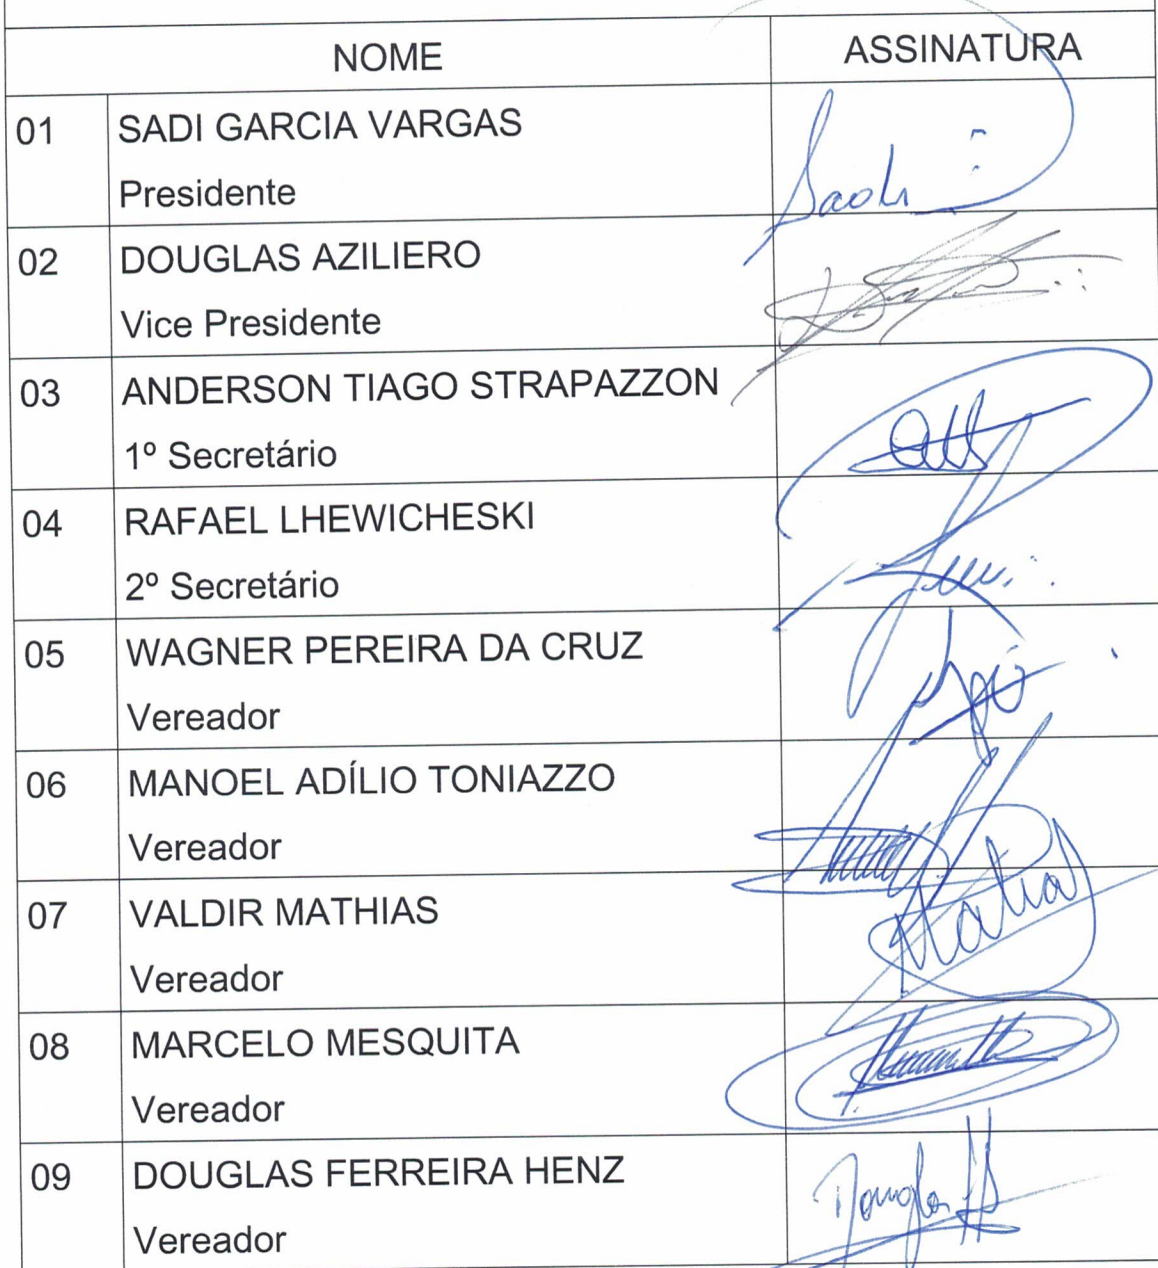 NOME ASSINATURA
01 SADI GARCIA VARGAS
Presidente
Sadi
02 DOUGLAS AZILIERO
Vice Presidente
03 ANDERSON TIAGO STRAPAZZON
1º Secretário
04 RAFAEL LHEWICHESKI
2º Secretário
05 WAGNER PEREIRA DA CRUZ
Vereador
06 MANOEL ADÍLIO TONIAZZO
Vereador
07 VALDIR MATHIAS
Vereador
08 MARCELO MESQUITA
Vereador
09 DOUGLAS FERREIRA HENZ
Vereador
Douglas